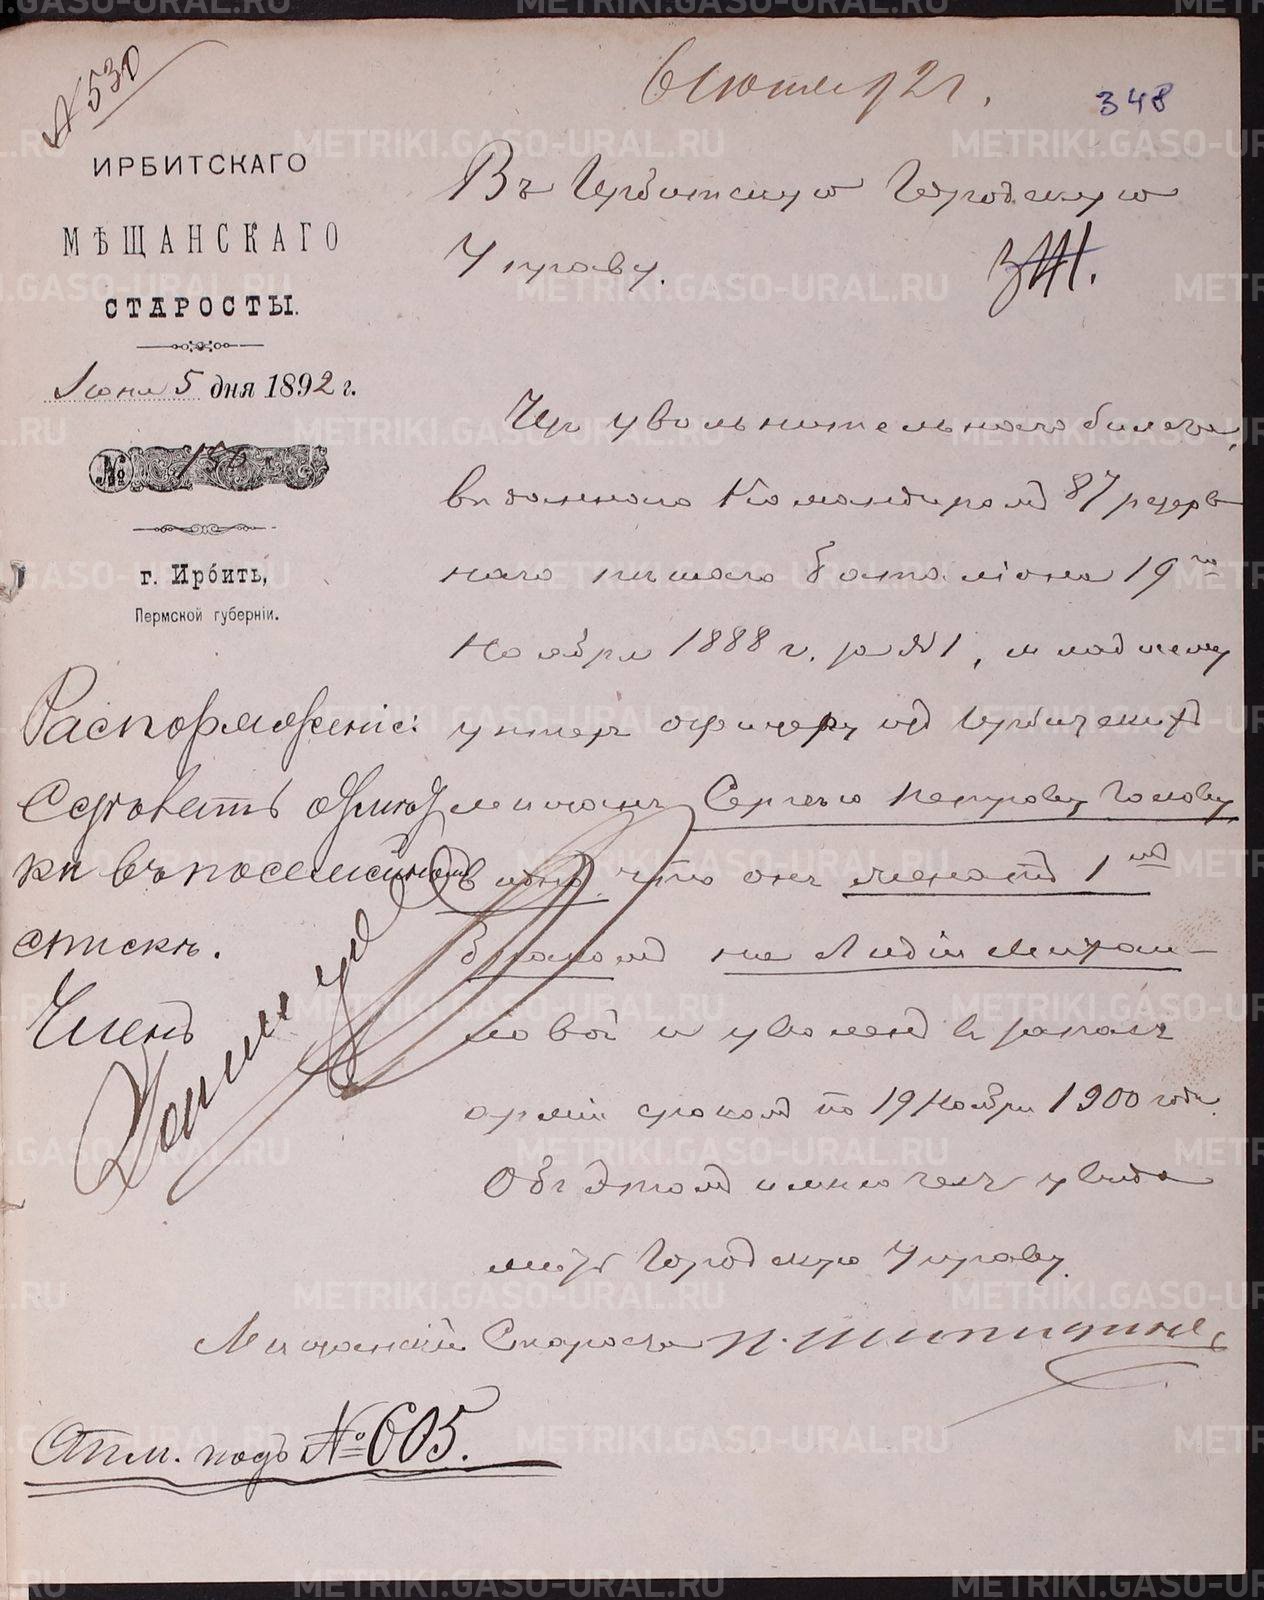 № 530
6 Июня 92 г.
348
ИРБИТСКАГО
МѢЩАНСКАГО
СТАРОСТЫ.
Июня 5 дня 1892 г.
№ 156
г. Ирбить,
Пермской губерніи.
Въ Ирбитскую Городскую
Управу.
Изъ увольнительнаго билета,
выданнаго Командиромъ 87 резерв
наго пѣшаго баталіона 19го
Ноября 1888 г. за №1, младшему
унтеръ офицеру изъ Ирбитскихъ
мѣщанъ Сергѣю Петрову Голову
видно, что онъ женатъ 1мъ
бракомъ на Лидіи Михай-
ловой и уволенъ въ запасъ
арміи срокомъ по 19 Ноября 1900 года.
Объ этомъ имѣю честь увѣдо
мить Городскую Управу.
Мѣщанскій Староста
Распоряженіе:
отмѣт
ки въ посемейномъ
спискѣ.
Членъ
Отм. подъ № 605.
METRIKI.GASO-URAL.RU